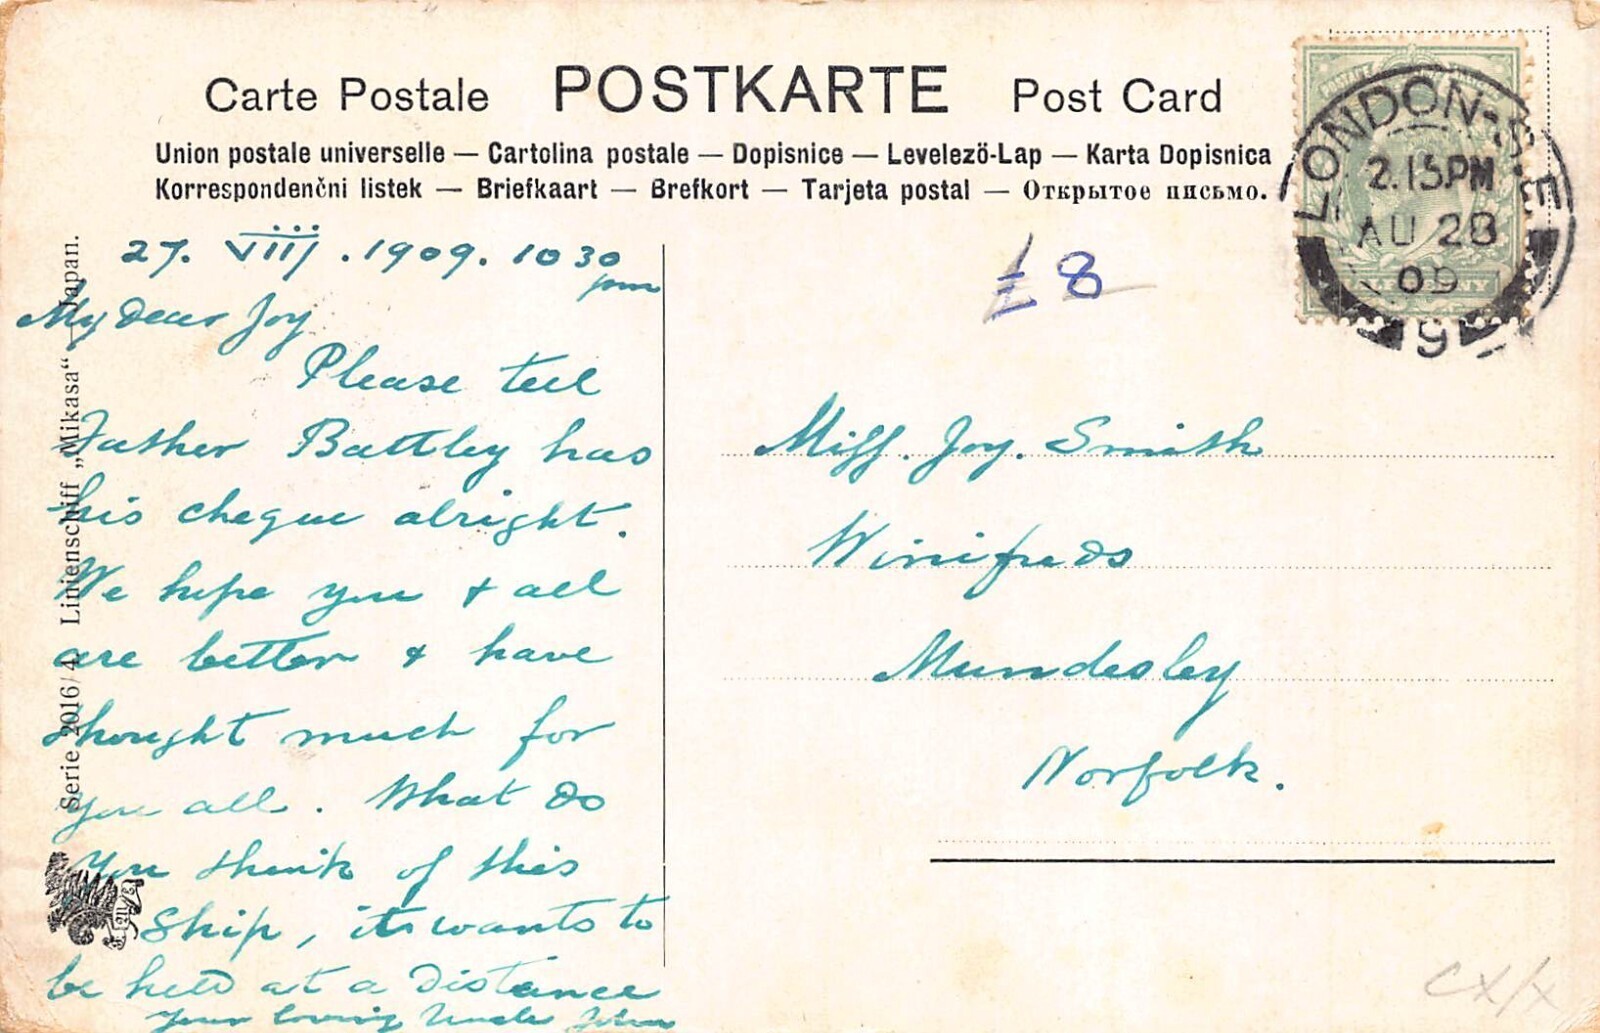 Carte Postale POSTKARTE Post Card
Union postale universelle — Cartolina postale — Dopisnice — Levelezö-Lap — Karta Dopisnica
Korrespondenčni listek — Briefkaart — Brefkort — Tarjeta postal — Открытое письмо.
LONDON-S.E
2.15PM
AU 28
09
9
27. VIII . 1909. 10 30 pm
My dear Joy
Please tell
Father Battley has
his cheque alright.
We hope you & all
are better & have
thought much for
you all. What do
you think of this
Ship, its wants to
be held at a distance
your loving Uncle John
Serie 2016/4 Linienschiff „Mikasa“ Japan.
£8
Miss. Joy. Smith
Winifreds
Mundesley
Norfolk.
CX/X